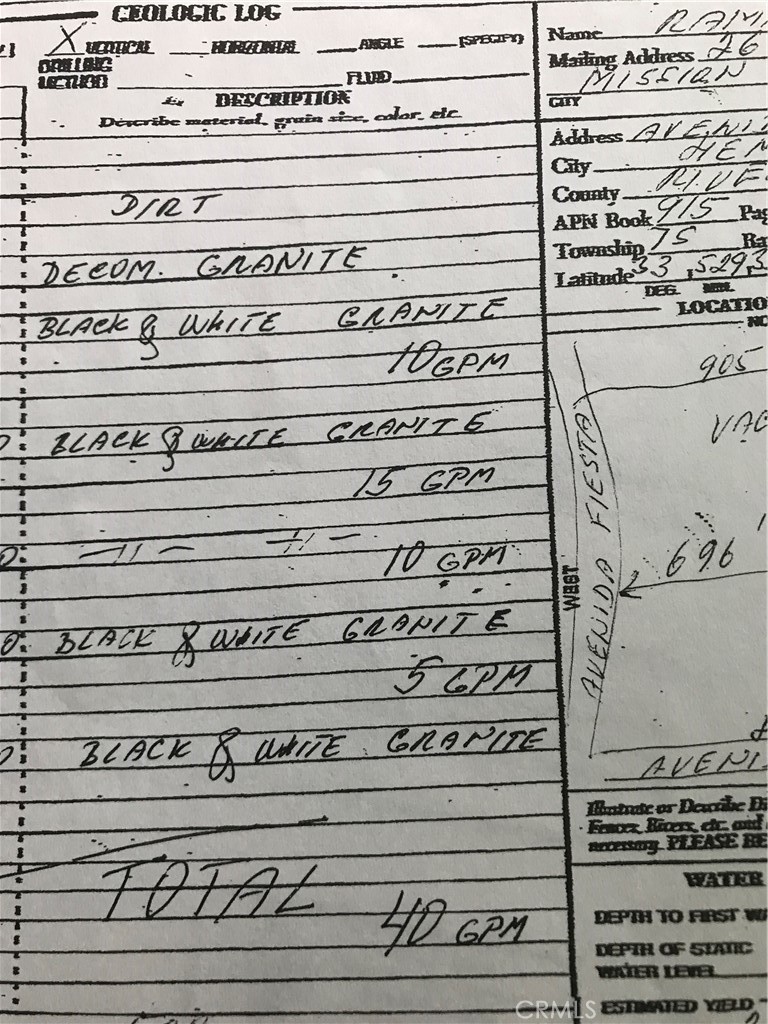 GEOLOGIC LOG
X VERTICAL HORIZONTAL ANGLE (SPECIFY)
DRILLING
METHOD FLUID
DESCRIPTION
Describe material, grain size, color, etc.
DIRT
DECOM. GRANITE
BLACK & WHITE GRANITE
10 GPM
BLACK & WHITE GRANITE
15 GPM
-11- -11-
10 GPM
BLACK & WHITE GRANITE
5 GPM
BLACK & WHITE GRANITE
TOTAL
40 GPM
Name
Mailing Address 26
MISSION
CITY
Address
City
County
APN Book 915
Township 7S
Latitude 33 5293
DEG. MIN.
905
696
WEST
AVENIDA FIESTA
Illustrate or Describe
Fences, Rivers, etc. and
necessary. PLEASE
WATER
DEPTH TO FIRST
DEPTH OF STATIC
WATER LEVEL
ESTIMATED YIELD
CRMLS